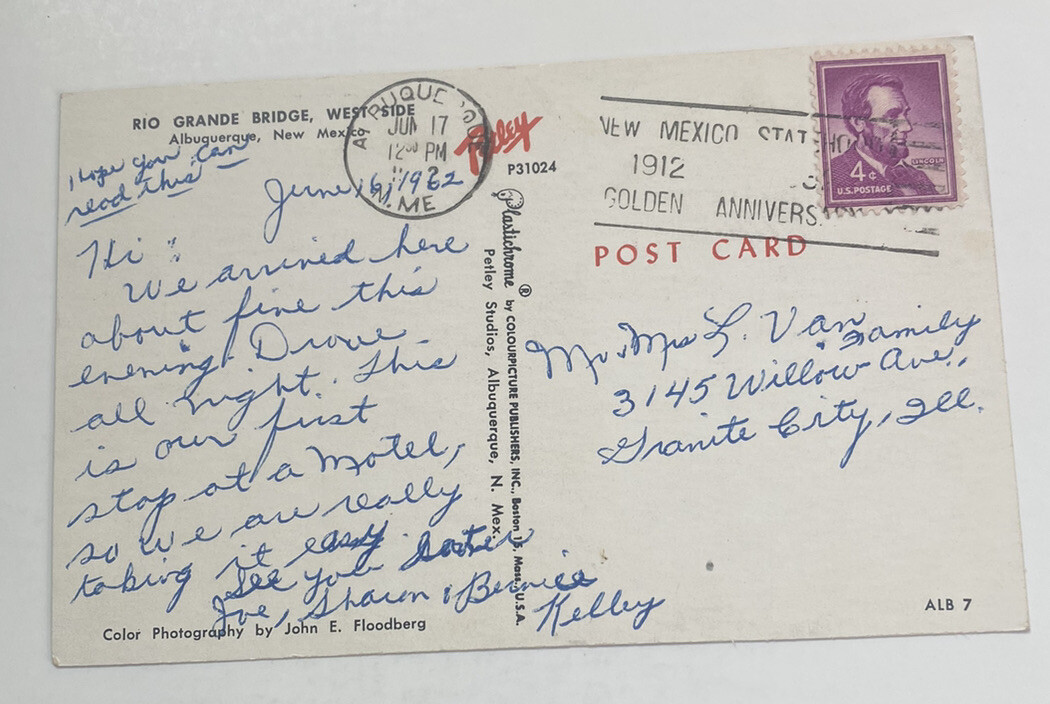 RIO GRANDE BRIDGE, WEST SIDE
Albuquerque, New Mexico
I hope you can
read this
June 16, 1962
Hi :
We arrived here
about fine this
evening. Drove
all night. This
is our first
stop at a Motel,
so we are really
taking it easy
See you later
Joe, Sharon & Bernice
Kelley
Color Photography by John E. Floodberg
JUN 17
12 PM
N. ME
Petley
P31024
Plastichrome ® by COLOURPICTURE PUBLISHERS, INC., Boston 15, Mass., U.S.A.
Petley Studios, Albuquerque, N. Mex.
NEW MEXICO STATEHOOD
1912
GOLDEN ANNIVERS
LINCOLN
4¢
U.S. POSTAGE
POST CARD
Mr & Mrs L. Van
Family
3145 Willow Ave.,
Granite City, Ill.
ALB 7